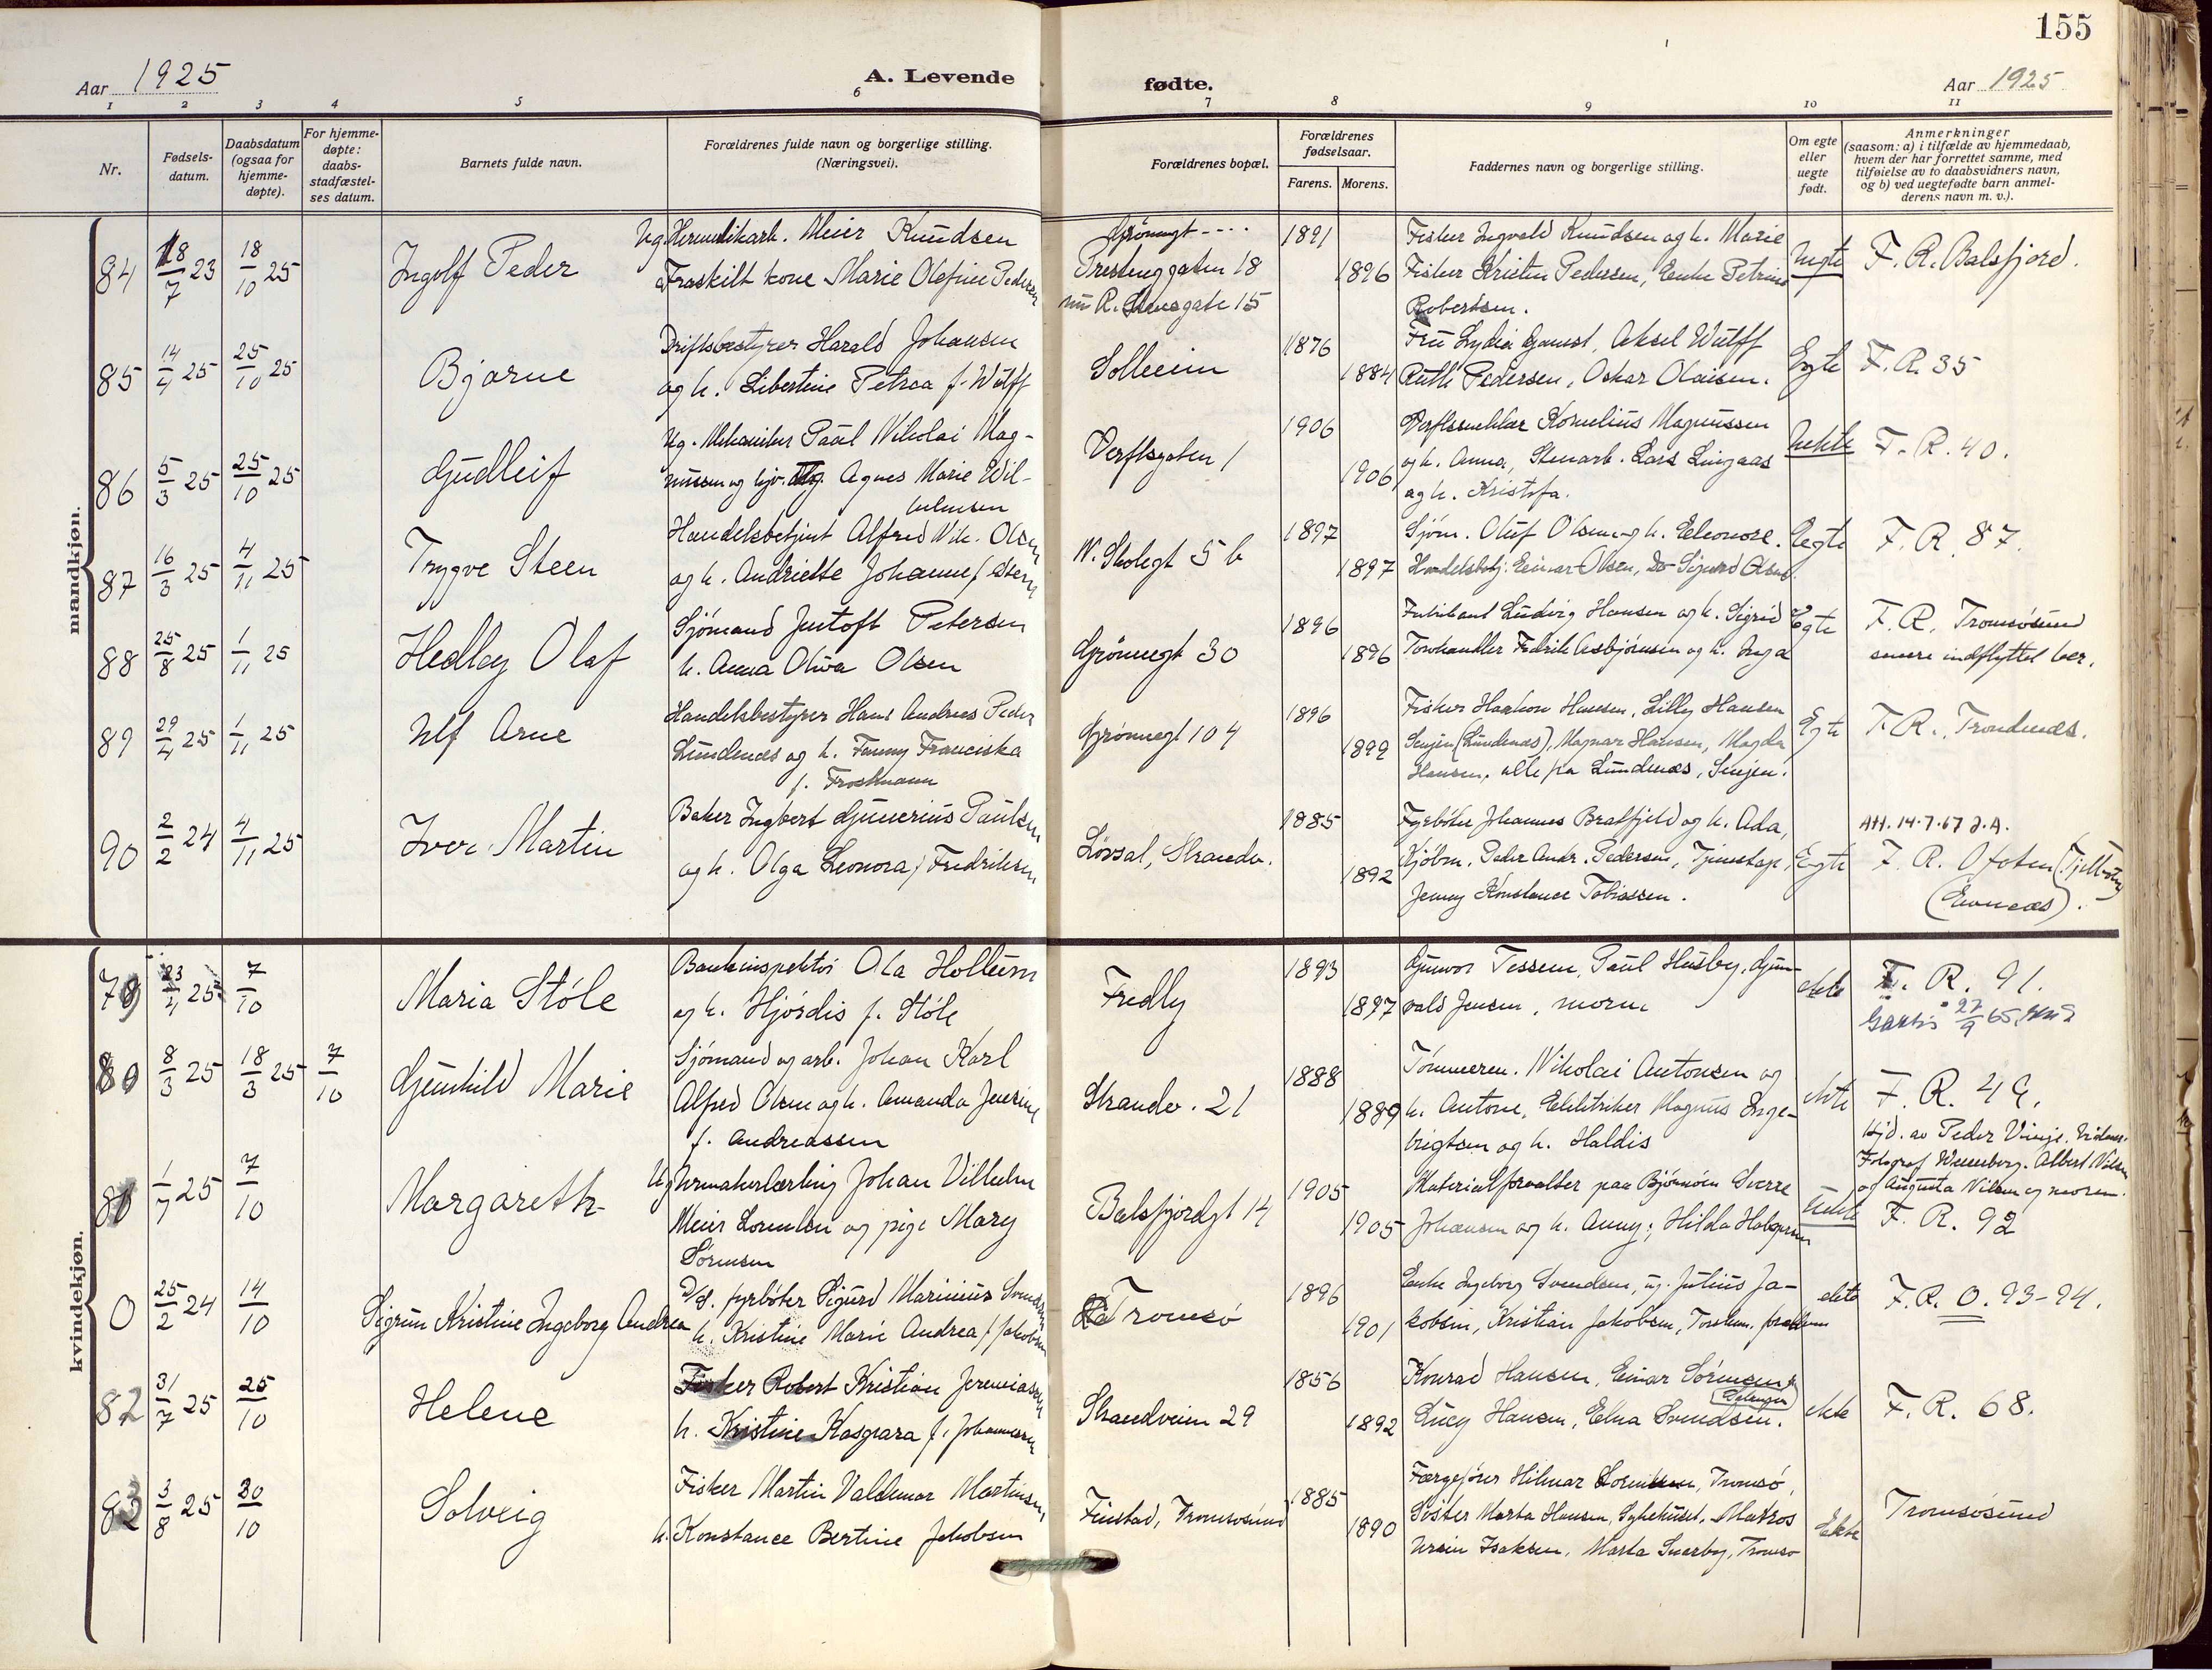 155
Aar 1925
A. Levende fødte.
Aar 1925
1 2 3 4 5 6 7 8 9 10 11
Nr.
Fødsels-
datum.
Daabsdatum
(ogsaa for
hjemme-
døpte).
For hjemme-
døpte:
daabs-
stadfæstel-
ses datum.
Barnets fulde navn.
Forældrenes fulde navn og borgerlige stilling.
(Næringsvei).
Forældrenes bopæl.
Forældrenes
fødselsaar.
Farens. Morens.
Faddernes navn og borgerlige stilling.
Om egte
eller
uegte
født.
Anmerkninger
(saasom: a) i tilfælde av hjemmedaab,
hvem der har forrettet samme, med
tilføielse av to daabsvidners navn,
og b) ved uegtefødte barn anmel-
derens navn m. v.).
mandkjøn.
84 18/7 23 18/10 25 Ingolf Peder
Ug. Hermetikarb. Meier Knudsen
Fraskilt kone Marie Olefine Pedersen
Grönnegt
18
nu R. gate 15
1891
1896
Fisker Ingvald Knudsen og h. Marie
Fisker Kristen Pedersen, Enke Petrine
Robertsen.
Uegte
F. R. Balsfjord.
85 14/4 25 25/10 25 Bjarne
Driftsbestyrer Harald Johansen
og h. Libertine Petrea f. Wulff
Solheim
1876
1884
Fru Lydia Aksel Wulff
Ruth Pedersen, Oskar Olaisen.
Egte
F. R. 35
86 5/3 25 25/10 25 Gudleif
Ug. Mekaniker Paul Nikolai Mag-
nussen og Agnes Marie Wil-
helmsen
Verftsgaten 1
1906
1906
Kornelius Magnussen
og h. Anna, Stenarb. Lars Lingaas
og h. Kristofa.
Uekte
F. R. 40.
87 16/3 25 4/11 25 Trygve Steen
Handelsbetjent Alfred Vik. Olsen
og h. Andriette Johanne f. Steen
N. Skolegt 5 b
1897
1897
Sjöm. Oluf Olsen og h. Eleonore.
Handelsbetj. Einar Olsen, Do Sigurd Olsen.
Egte
F. R. 87.
88 25/8 25 1/11 25 Hedley Olaf
Sjömand Jentoft Petersen
h. Anna Oliva Olsen
Grönnegt 30
1896
1896
Fabrikant Ludvig Hansen og h. Sigrid
Fredrik Asbjörnsen og h. Inga
Egte
F. R. Tromsösund
senere indflyttet her.
89 29/4 25 1/11 25 Ulf Arne
Handelsbestyrer Hans Andreas Peder
Lundenes og h. Fanny Franciska
f. Frostmann
Grönnegt 104
1896
1899
Fisker Haakon Hansen, Lilly Hansen
Senjen (Lundenæs), Magnar Hansen, Magda
Hansen, alle fra Lundenæs, Senjen.
Egte
F. R. Trondenæs.
90 2/2 24 4/11 25 Iver Martin
Baker Ingbert Gunerius Paulsen
og h. Olga Leonora f. Fredriksen
Lövsal, Strandv.
1885
1892
Fyrböter Johannes Bratfjeld og h. Ada,
Kjöbm. Peder Andr. Pedersen,
Jenny Konstance Tobiassen.
Egte
Att. 14.7.67 J.A.
F. R. Ofoten
(Evenæs).
kvindekjøn.
79 23/4 25 7/10 Maria Stöle
Bankinspektör Ola Hollum
og h. Hjördis f. Stöle
Fredly
1893
1897
Gunvor Tessem, Paul Husby, Gun-
vald Jensen, moren
ekte
F. R. 91.
27/9 65
80 8/3 25 18/3 25 7/10 Gunhild Marie
Sjömand og arb. Johan Karl
Alfred Olsen og h. Amanda Jensine
f. Andreassen
Strandv. 21
1888
1889
Tömmerm. Nikolai Antonsen og
h. Antone, Elektriker Magnus Inge-
brigtsen og h. Haldis
ekte
F. R. 49.
Hjd. av Peder Vinje.
Fotograf Wennberg. Albert Nilsen
og Augusta Nilsen og moren.
81 1/7 25 7/10 Margareth
Ug Urmakerlærling Johan Vilhelm
Meier Lorentsen og pige Mary
Sörensen
Balsfjordgt 14
1905
1905
Materialforvalter paa Björnöen Sverre
Johansen og h. Anny; Hilda
Uekte
F. R. 92
0 25/2 24 14/10 Sigrun Kristine Ingeborg Andrea
D/S. fyrböter Sigurd Marinius Svendsen
h. Kristine Marie Andrea f. Jakobsen
Tromsö
1896
1901
Enke Ingeborg Svendsen, ug. Julius Ja-
kobsen, Kristian Jakobsen,
ekte
F. R. 0. 93-94.
82 31/7 25 25/10 Helene
Fisker Robert Kristian Jeremiasen
h. Kristine Kaspara f. Johannesen
Strandveien 29
1856
1892
Konrad Hansen, Einar Sörensen
Lucy Hansen, Edna Svendsen.
ekte
F. R. 68.
83 3/8 25 30/10 Solveig
Fisker Martin Valdemar Martinsen
h. Konstance Bertine Jakobsen
Finstad, Tromsösund
1885
1890
Færgefører Hilmar Tromsö,
Söster Marta Hansen, Sykehuset, Matros
Isaksen, Marta Tromsö
Ekte
Tromsösund